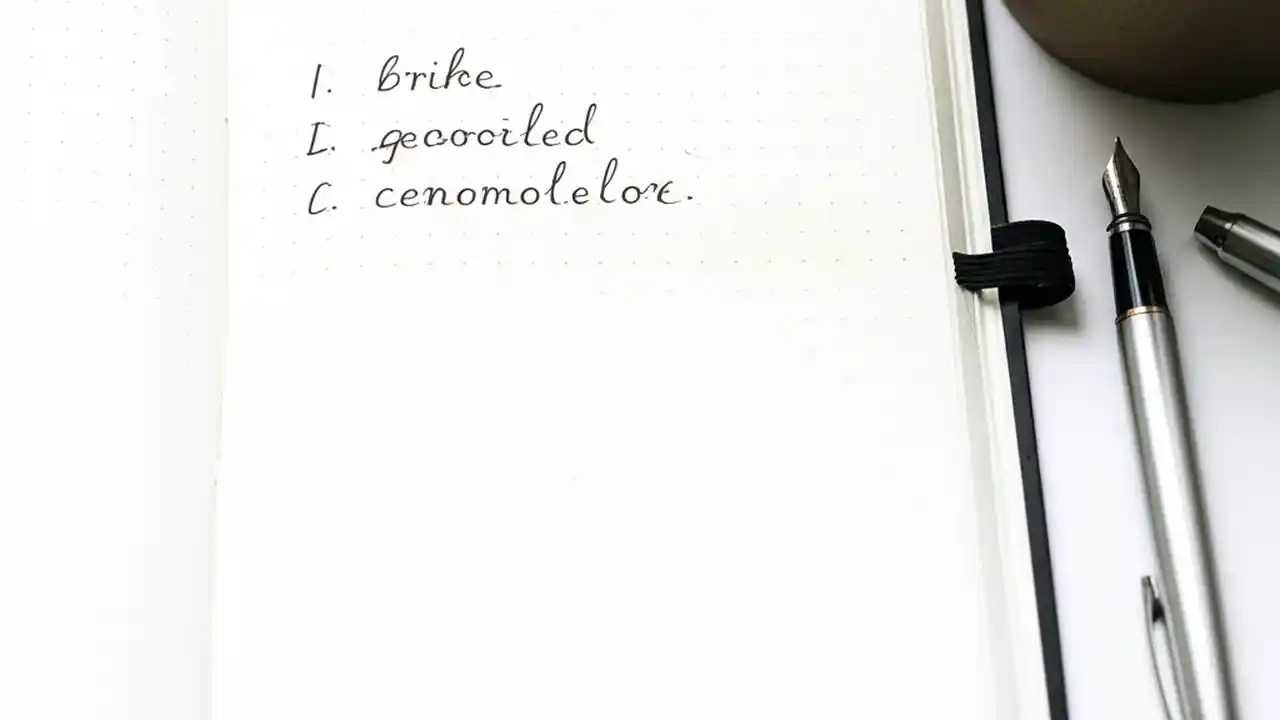 1. brike
I. gecooiled
C. cenomolelore.